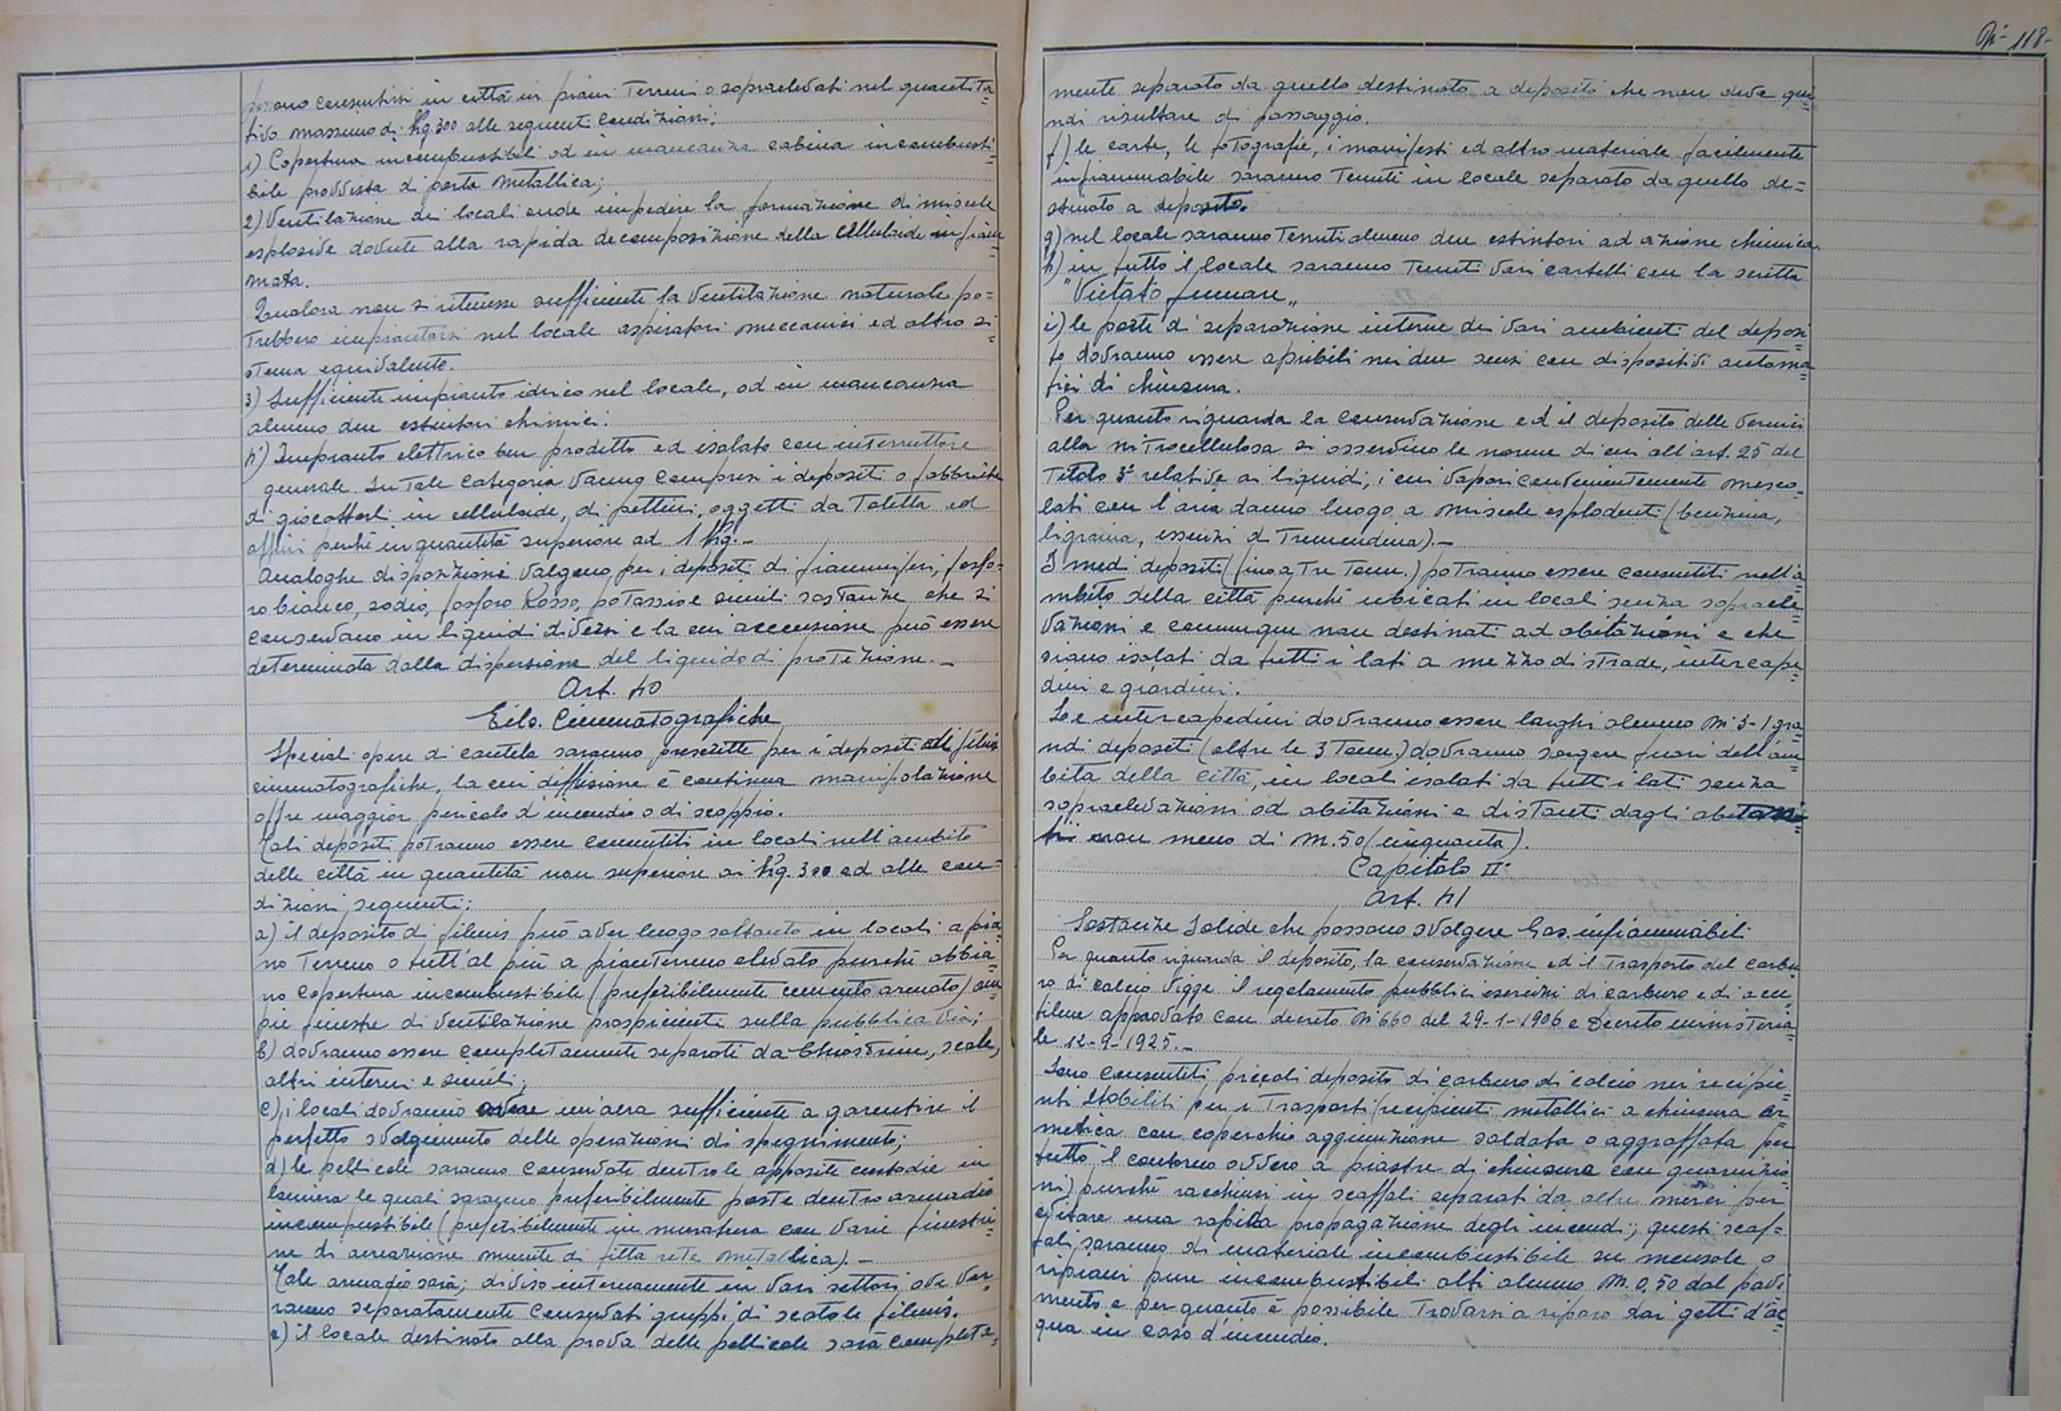 sono consentirsi in città in piani Terreni o sopraelevati nel quantita=
tivo massimo di Kg. 300 alle seguenti Condizioni:
1) Copertura incombustibili od in mancanza cabina incombusti=
bile provvista di porta metallica;
2) Ventilazione dei locali onde impedire la formazione di miscele
esplosive dovute alla rapida decomposizione della Celluloide infiam=
mata.
Qualora non si ritenesse sufficiente la Ventilazione naturale po=
Trebbero impiantarsi nel locale aspiratori meccanici ed altro si=
stema equivalente.
3) Sufficiente impianto idrico nel locale, od in mancanza
almeno due estintori chimici.
4) Impianto elettrico ben protetto ed isolato con interruttore
generale. In Tale Categoria Vanno Compresi i depositi o fabbriche
di giocattoli in celluloide, di pettini, oggetti da Toletta ed
affini perché in quantità superiore ad 1 Kg.-
Analoghe disposizioni Valgono per i depositi di fiammiferi, fosfo=
ro bianco, sodio, fosforo Rosso, potassio e simili sostanze che si
Conservano in liquidi diversi e la cui accensione può essere
determinata dalla dispersione del liquido di proTezione.-
Art. 40
Cinematografiche
Speciali opere di cautela saranno prescritte per i depositi di films
cinematografiche, la cui diffusione è continua manipolazione
offre maggior pericolo d'incendio o di scoppio.
Tali depositi poTranno essere consentiti in locali nell'ambito
delle città in quantità non superiore ai Kg. 300 ed alle con=
dizioni seguenti:
a) il deposito di films può aver luogo soltanto in locali a pia=
no Terreno o tutt'al più a pianTerreno elevato purché abbia=
no Copertura incombustibile (preferibilmente cemento armato) am=
pie finestre di Ventilazione prospicienti sulla pubblica via;
b) dovranno essere Completamente separati da Chiostrine, scale,
altri interni e simili;
c) i locali dovranno avere un'aera sufficiente a garentire il
perfetto svolgimento delle operazioni di spegnimento;
d) le pellicole saranno Conservate dentro le apposite custodie in
lamiera le quali saranno preferibilmente poste dentro armadio
incombustibile (preferibilmente in muratura con Varie finestri=
ne di areazione munite di fitta rete metallica).-
Tale armadio sarà; diviso internamente in Vari settori ove Ver=
ranno separatamente Conservati gruppi di scatole films.
e) il locale destinato alla prova delle pellicole sarà Completa=
N° 118-
mente separato da quello destinato a deposito che non deve qui=
ndi risultare di passaggio.
f) le carte, le foTografie, i manifesti ed altro materiale facilmente
infiammabile saranno Tenuti in locale separato da quello de=
stinato a deposito.
g) nel locale saranno Tenuti almeno due estintori ad azione chimica.
h) in tutto il locale saranno Tenuti Vari cartelli con la scritta
"Vietato fumare"
i) le porte di separazione interne dei Vari ambienti del deposi=
to dovranno essere apribili nei due sensi con dispositivi automa=
tici di chiusura.
Per quanto riguarda la Conservazione ed il deposito delle Vernici
alla niTrocellulosa si osservino le norme di cui all'art. 25 del
Titolo 3° relative ai liquidi, i cui Vapori convenientemente mesco=
lati con l'aria danno luogo a miscele esplodenti (benzina,
ligroina, essenzi di Trementina).-
I medi depositi (fino a Tre Tonn.) poTranno essere Consentiti nell'a=
mbito della città purché ubicati in locali senza sopraele=
Vazioni e comunque non destinati ad abitazioni e che
siano isolati da tutti i lati a mezzo di strade, intercape=
dini e giardini.
Le intercapedini dovranno essere larghi almeno M. 3- I gra=
ndi depositi (oltre le 3 Tonn.) dovranno sorgere fuori dell'am=
bito della città, in locali isolati da tutti i lati senza
sopraelevazioni od abitazioni e distanti dagli
non meno di M. 50 (cinquanta).
Capitolo II°
Art. 41
Sostanze Solide che possono svolgere Gas infiammabili
Per quanto riguarda il deposito, la conservazione ed il Trasporto del Carbu=
ro di calcio Vigge il regolamento pubblici esercizi di carburo e di aceti=
lene approvato con decreto N° 660 del 29-1-1906 e Decreto ministeria=
le 12-9-1925.-
Sono Consentiti piccoli deposito di Carburo di Calcio nei recipie=
nti Stabiliti per i Trasporti (recipienti metallici a chiusura er=
metica con coperchio aggiunzione saldata o aggraffata per
tutto il contorno ovvero a piastre di chiusura con guarnizio=
ni) purché racchiusi in scaffali separati da altre merci per
evitare una rapida propagazione degli incendi; questi scaf=
fali saranno di materiale incombustibile su mensole o
ripiani pure incombustibili alti almeno M. 0,50 dal pavi=
mento e per quanto è possibile Trovarsi a riparo dai getti d'ac=
qua in caso d'incendio.